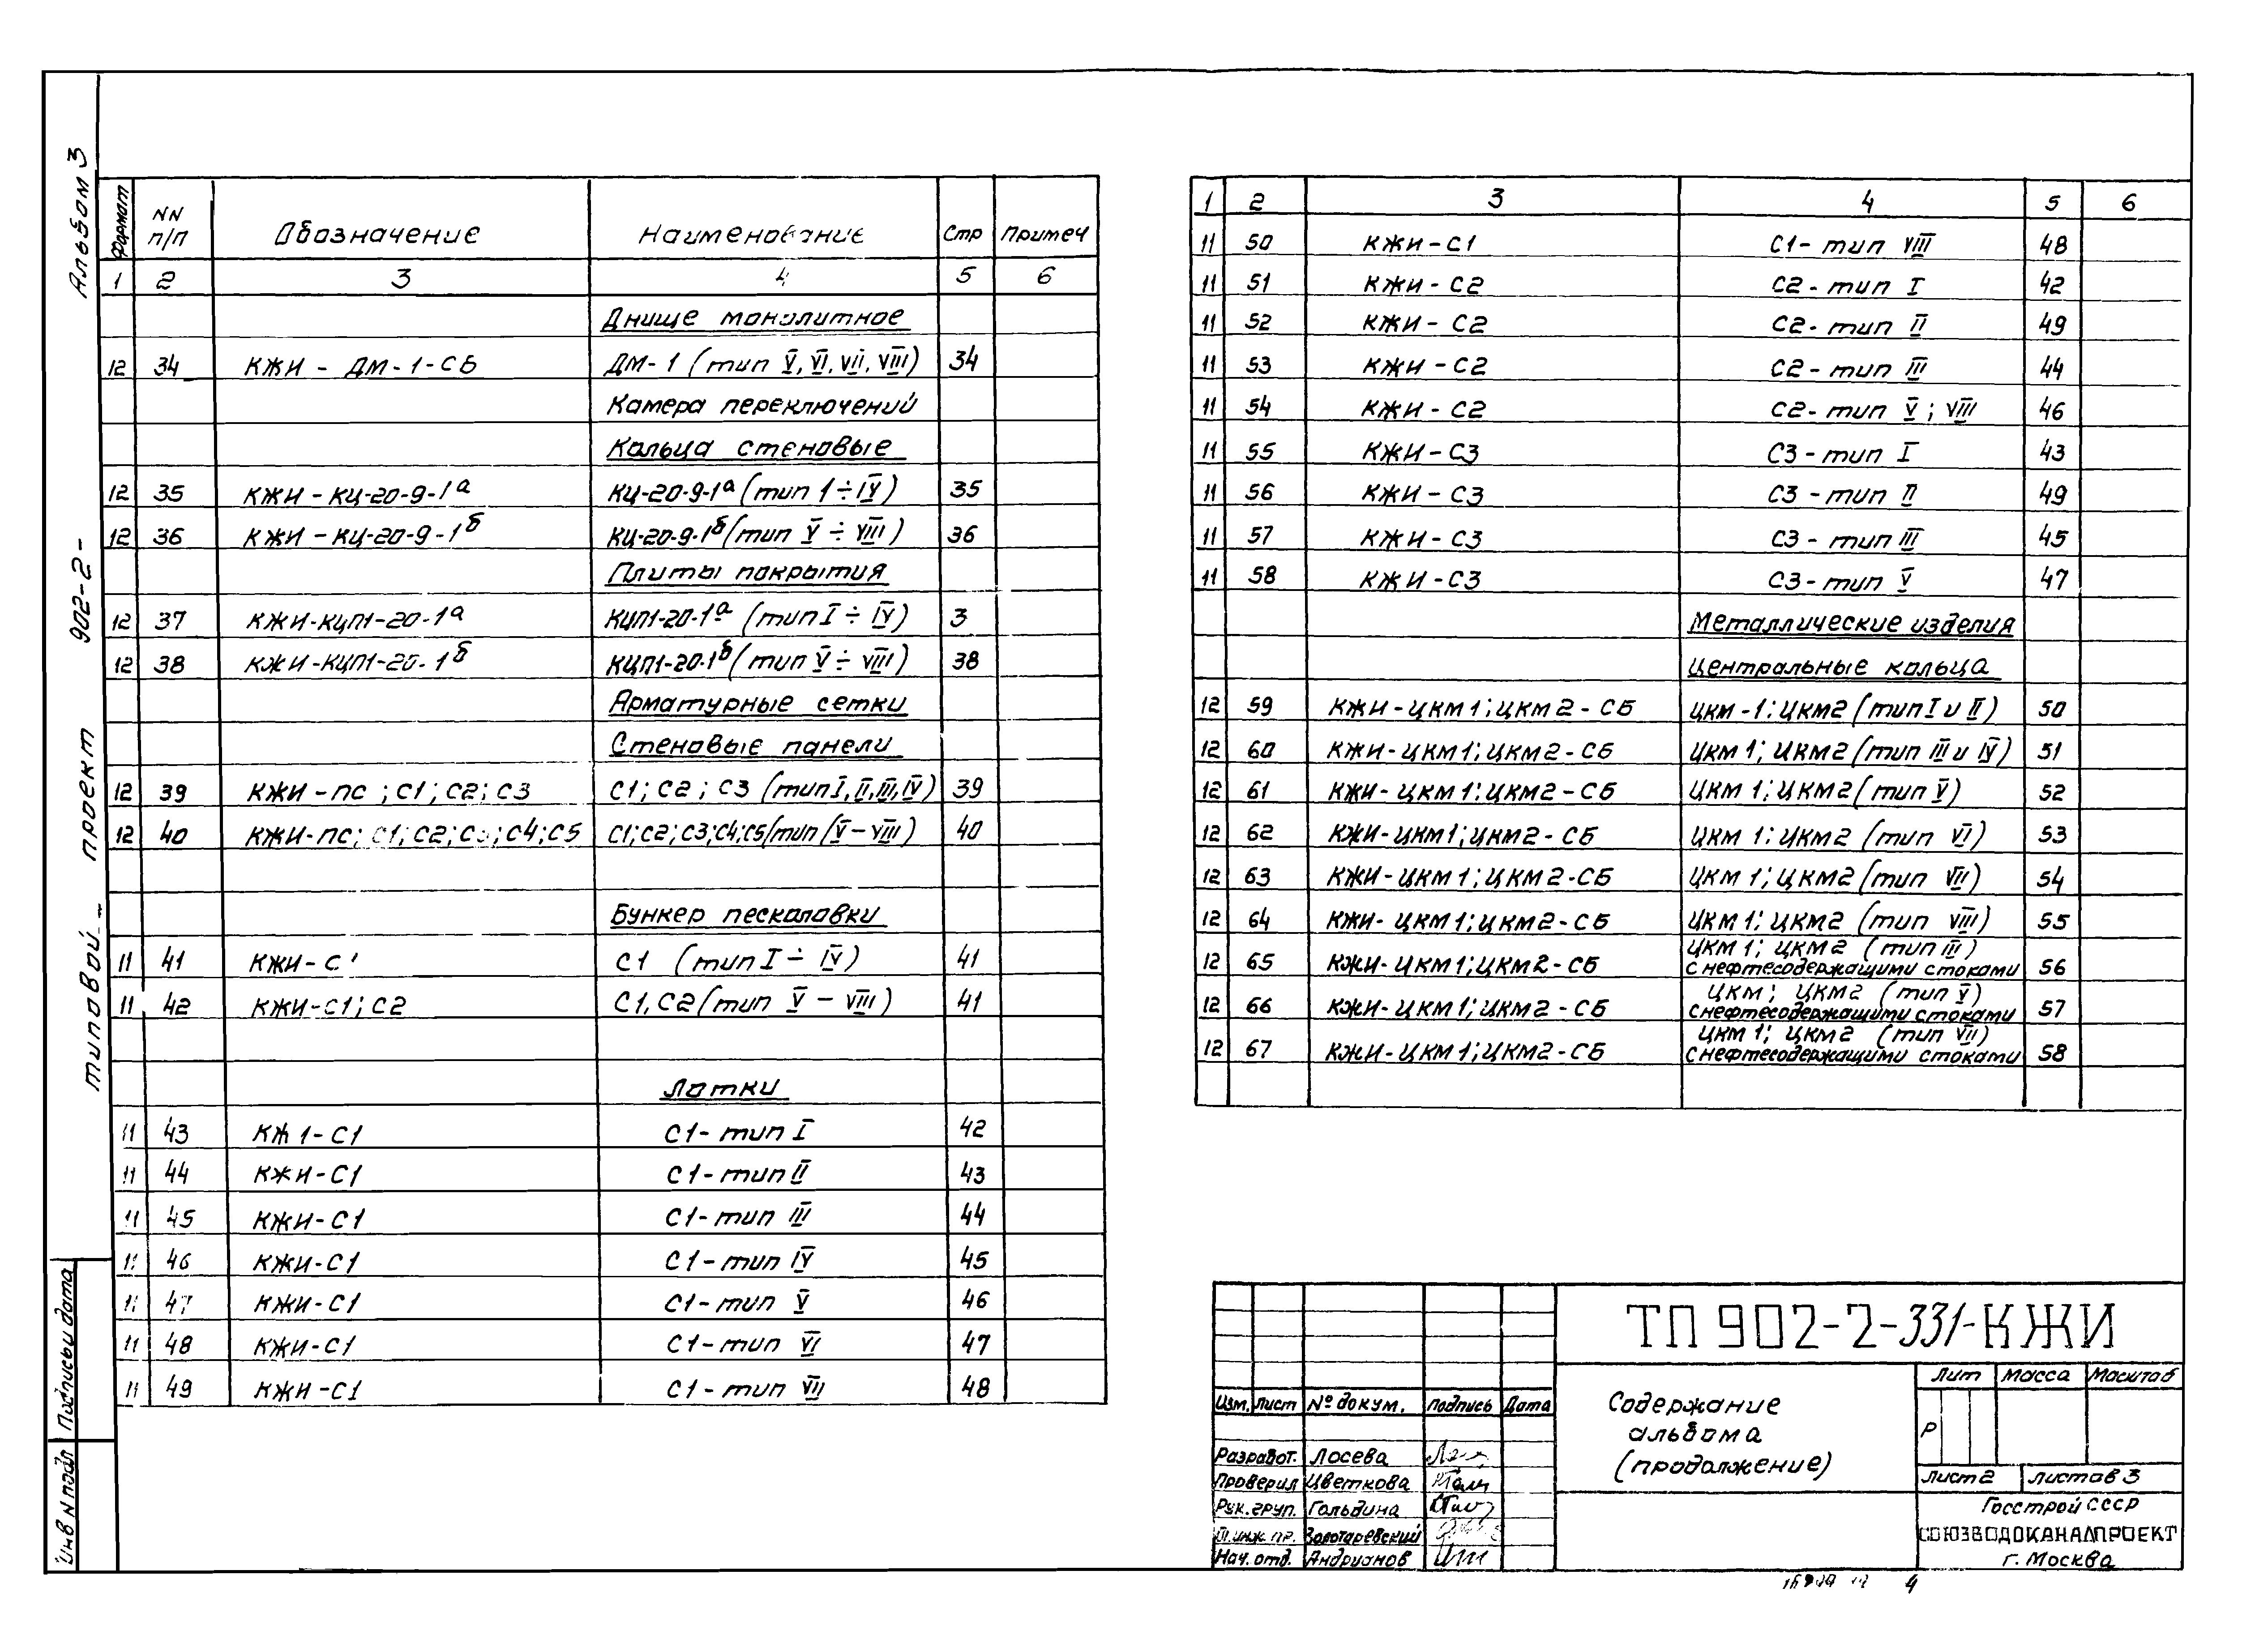 Альбом 3
типовой проект 902-2-
Подпись и дата
Инв N подл
Формат | NN п/п | Обозначение | Наименование | Стр | Примеч
1 | 2 | 3 | 4 | 5 | 6
Днище монолитное
12 | 34 | КЖИ - ДМ-1-СБ | ДМ-1 (тип V, VI, VII, VIII) | 34
Камера переключений
Кольца стеновые
12 | 35 | КЖИ - КЦ-20-9-1а | КЦ-20-9-1а (тип 1÷IV) | 35
12 | 36 | КЖИ - КЦ-20-9-1б | КЦ-20-9-1б (тип V ÷ VIII) | 36
Плиты покрытия
12 | 37 | КЖИ-КЦП1-20-1а | КЦП1-20-1а (тип I ÷ IV) | 3
12 | 38 | КЖИ-КЦП1-20-1б | КЦП1-20-1б (тип V ÷ VIII) | 38
Арматурные сетки
Стеновые панели
12 | 39 | КЖИ - ПС ; С1; С2; С3 | С1; С2; С3 (тип I, II, III, IV) | 39
12 | 40 | КЖИ-ПС; С1; С2; С3; С4; С5 | С1; С2; С3; С4; С5 (тип (V - VIII) | 40
Бункер песколовки
11 | 41 | КЖИ-С1 | С1 (тип I ÷ IV) | 41
11 | 42 | КЖИ-С1; С2 | С1, С2 (тип V - VIII) | 41
Лотки
11 | 43 | КЖ1-С1 | С1-тип I | 42
11 | 44 | КЖИ-С1 | С1-тип II | 43
11 | 45 | КЖИ-С1 | С1-тип III | 44
11 | 46 | КЖИ-С1 | С1-тип IV | 45
11 | 47 | КЖИ-С1 | С1-тип V | 46
11 | 48 | КЖИ-С1 | С1-тип VI | 47
11 | 49 | КЖИ-С1 | С1-тип VII | 48
1 | 2 | 3 | 4 | 5 | 6
11 | 50 | КЖИ-С1 | С1-тип VIII | 48
11 | 51 | КЖИ-С2 | С2-тип I | 42
11 | 52 | КЖИ-С2 | С2-тип II | 49
11 | 53 | КЖИ-С2 | С2-тип III | 44
11 | 54 | КЖИ-С2 | С2-тип V ; VIII | 46
11 | 55 | КЖИ-С3 | С3-тип I | 43
11 | 56 | КЖИ-С3 | С3-тип II | 49
11 | 57 | КЖИ-С3 | С3-тип III | 45
11 | 58 | КЖИ-С3 | С3-тип V | 47
Металлические изделия
Центральные кольца
12 | 59 | КЖИ-ЦКМ1; ЦКМ2-СБ | ЦКМ-1; ЦКМ2 (тип I и II) | 50
12 | 60 | КЖИ-ЦКМ1; ЦКМ2-СБ | ЦКМ1; ЦКМ2 (тип III и IV) | 51
12 | 61 | КЖИ-ЦКМ1; ЦКМ2-СБ | ЦКМ1; ЦКМ2 (тип V) | 52
12 | 62 | КЖИ-ЦКМ1; ЦКМ2-СБ | ЦКМ1; ЦКМ2 (тип VI) | 53
12 | 63 | КЖИ-ЦКМ1; ЦКМ2-СБ | ЦКМ1; ЦКМ2 (тип VII) | 54
12 | 64 | КЖИ-ЦКМ1; ЦКМ2-СБ | ЦКМ1; ЦКМ2 (тип VIII) | 55
12 | 65 | КЖИ-ЦКМ1; ЦКМ2-СБ | ЦКМ1; ЦКМ2 (тип III) с нефтесодержащими стоками | 56
12 | 66 | КЖИ-ЦКМ1; ЦКМ2-СБ | ЦКМ; ЦКМ2 (тип V) с нефтесодержащими стоками | 57
12 | 67 | КЖИ-ЦКМ1; ЦКМ2-СБ | ЦКМ1; ЦКМ2 (тип VII) с нефтесодержащими стоками | 58
ТП 902-2-331-КЖИ
Изм. | Лист | № докум. | Подпись | Дата
Разработ. | Лосева
Проверил | Цветкова
Рук. груп. | Гольдина
Гл. инж. пр. | Золотаревский
Нач. отд. | Андрианов
Содержание
альбома
(продолжение)
Лит | Масса | Масштаб
Р
Лист 2 | Листов 3
Госстрой СССР
СОЮЗВОДОКАНАЛПРОЕКТ
г. Москва
4